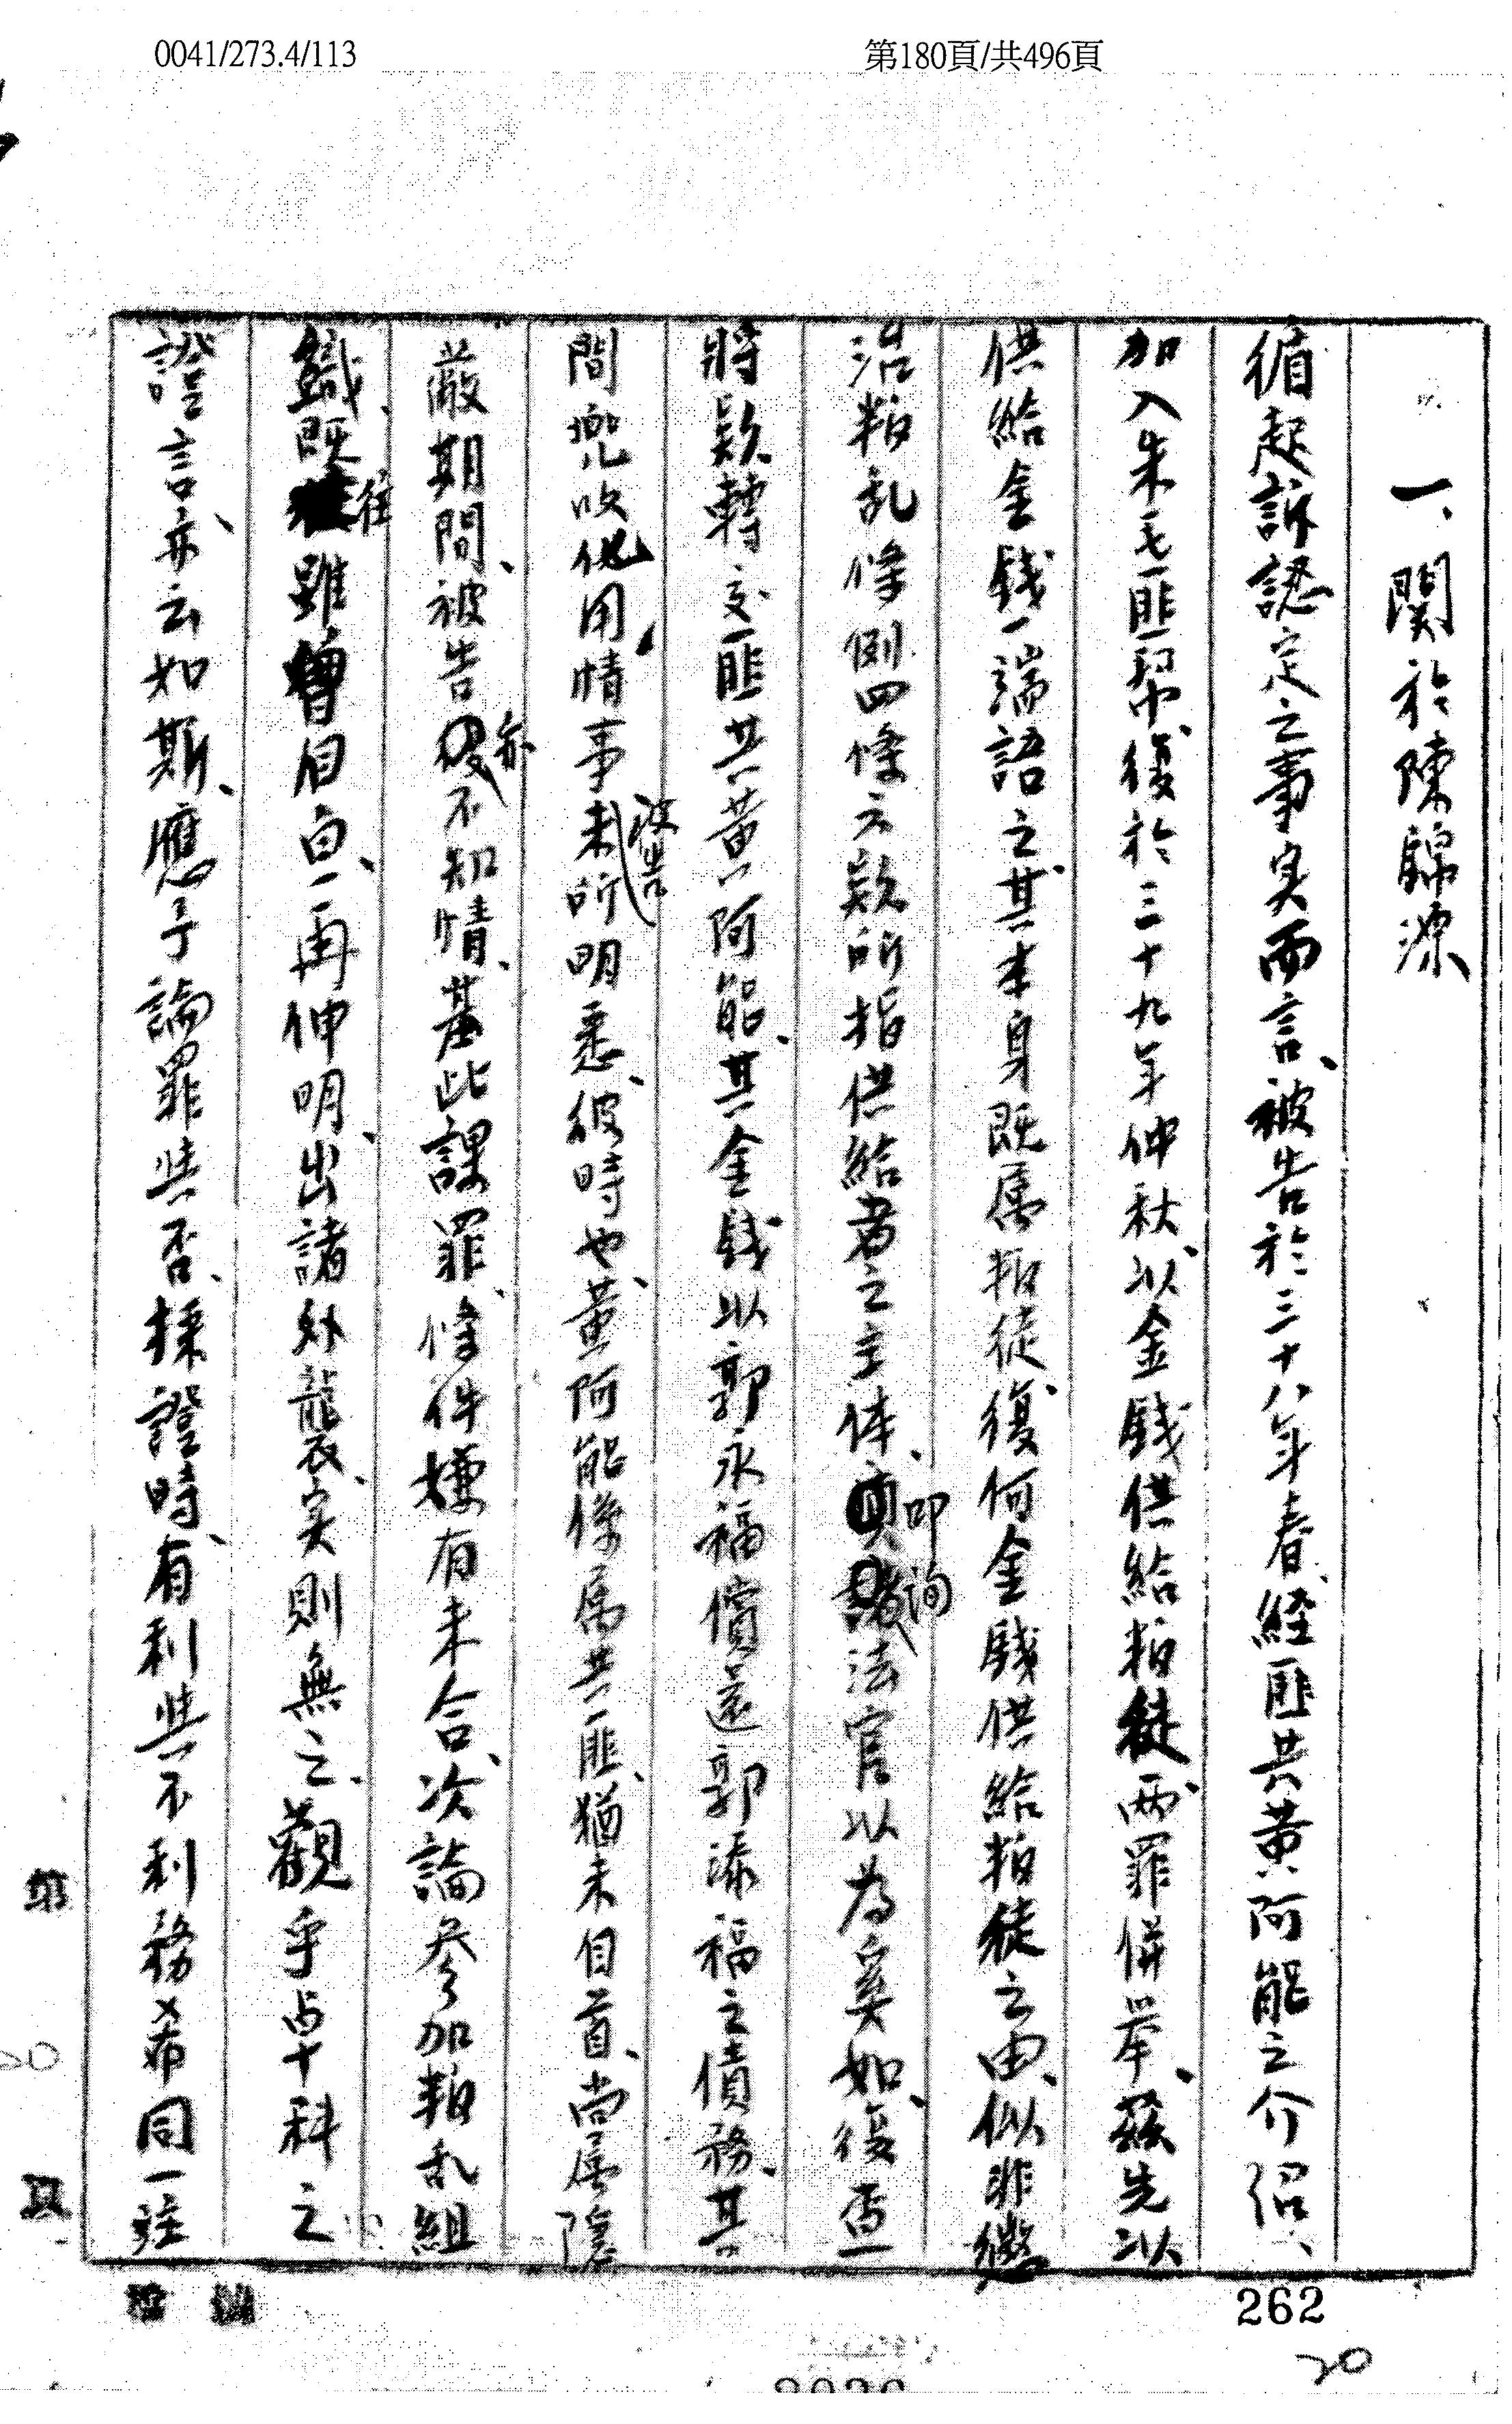 0041/273.4/113
第180頁/共496頁
一、關於陳歸源
循起訴認定之事实而言、被告於三十八年春、経匪共黄阿能之介绍、
加入朱毛匪帮、後於三十九年仲秋、以金錢供給叛徒、两罪併举、兹先以
供給金錢一端語之、其本身既属叛徒、復何金錢供給叛徒之由、似非懲
治叛乱條例四條六款所指供給者之主体、叩詢法官以為妥如、後查
將款轉交匪共黄阿能、其金錢以郭永福償還郭添福之債務、其
間兜收化用、情事未被告所明悉、彼時也、黄阿能係属共匪、猶未自首、尚屬隱
蔽期間、被告亦不知情、基此課罪、條件嫌有未合、次論参加叛乱組
織、既往雖曾自白、一再伸明、出諸外襲、实則無之、觀乎卓十科之
證言、亦云如斯、應予論罪與否、採證時、有利與不利務希同一注
262
20